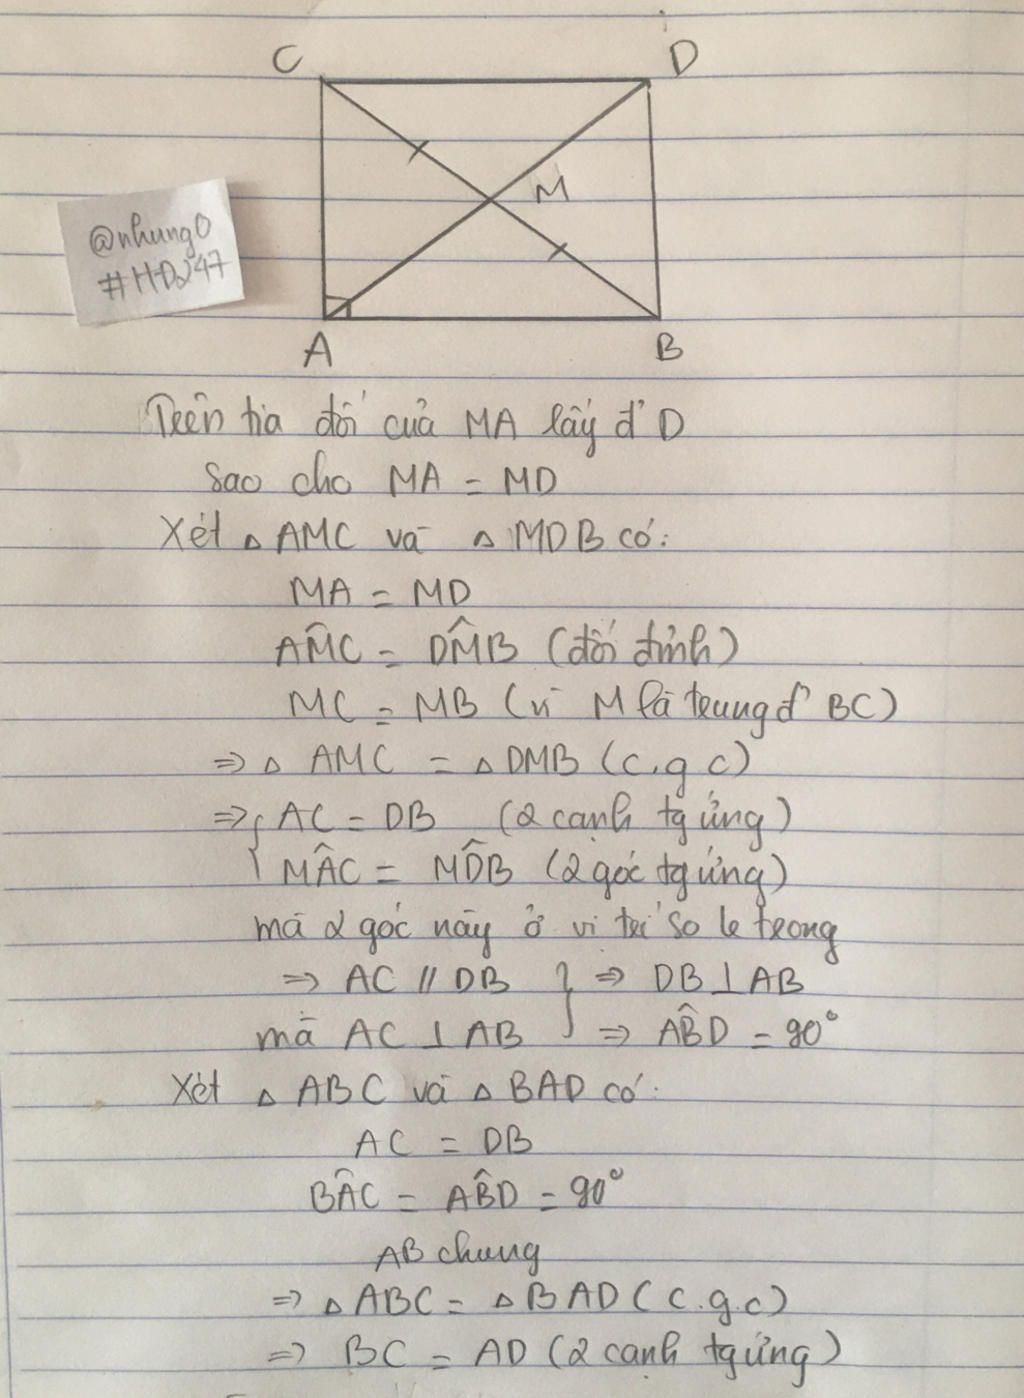 C
D
M
@nhung0
#HD247
A
B
Trên tia đối của MA lấy đ' D
sao cho MA = MD
Xét △ AMC và △ MDB có:
MA = MD
AM̂C = DM̂B (đối đỉnh)
MC = MB (vì M là trung đ' BC)
⇒ △ AMC = △ DMB (c.g c)
⇒ { AC = DB (2 cạnh tg ứng)
MÂC = MD̂B (2 góc tg ứng)
mà 2 góc này ở vị trí so le trong
⇒ AC // DB } ⇒ DB ⊥ AB
mà AC ⊥ AB } ⇒ AB̂D = 90°
Xét △ ABC và △ BAD có:
AC = DB
BÂC = AB̂D = 90°
AB chung
⇒ △ ABC = △ BAD (c.g.c)
⇒ BC = AD (2 cạnh tg ứng)